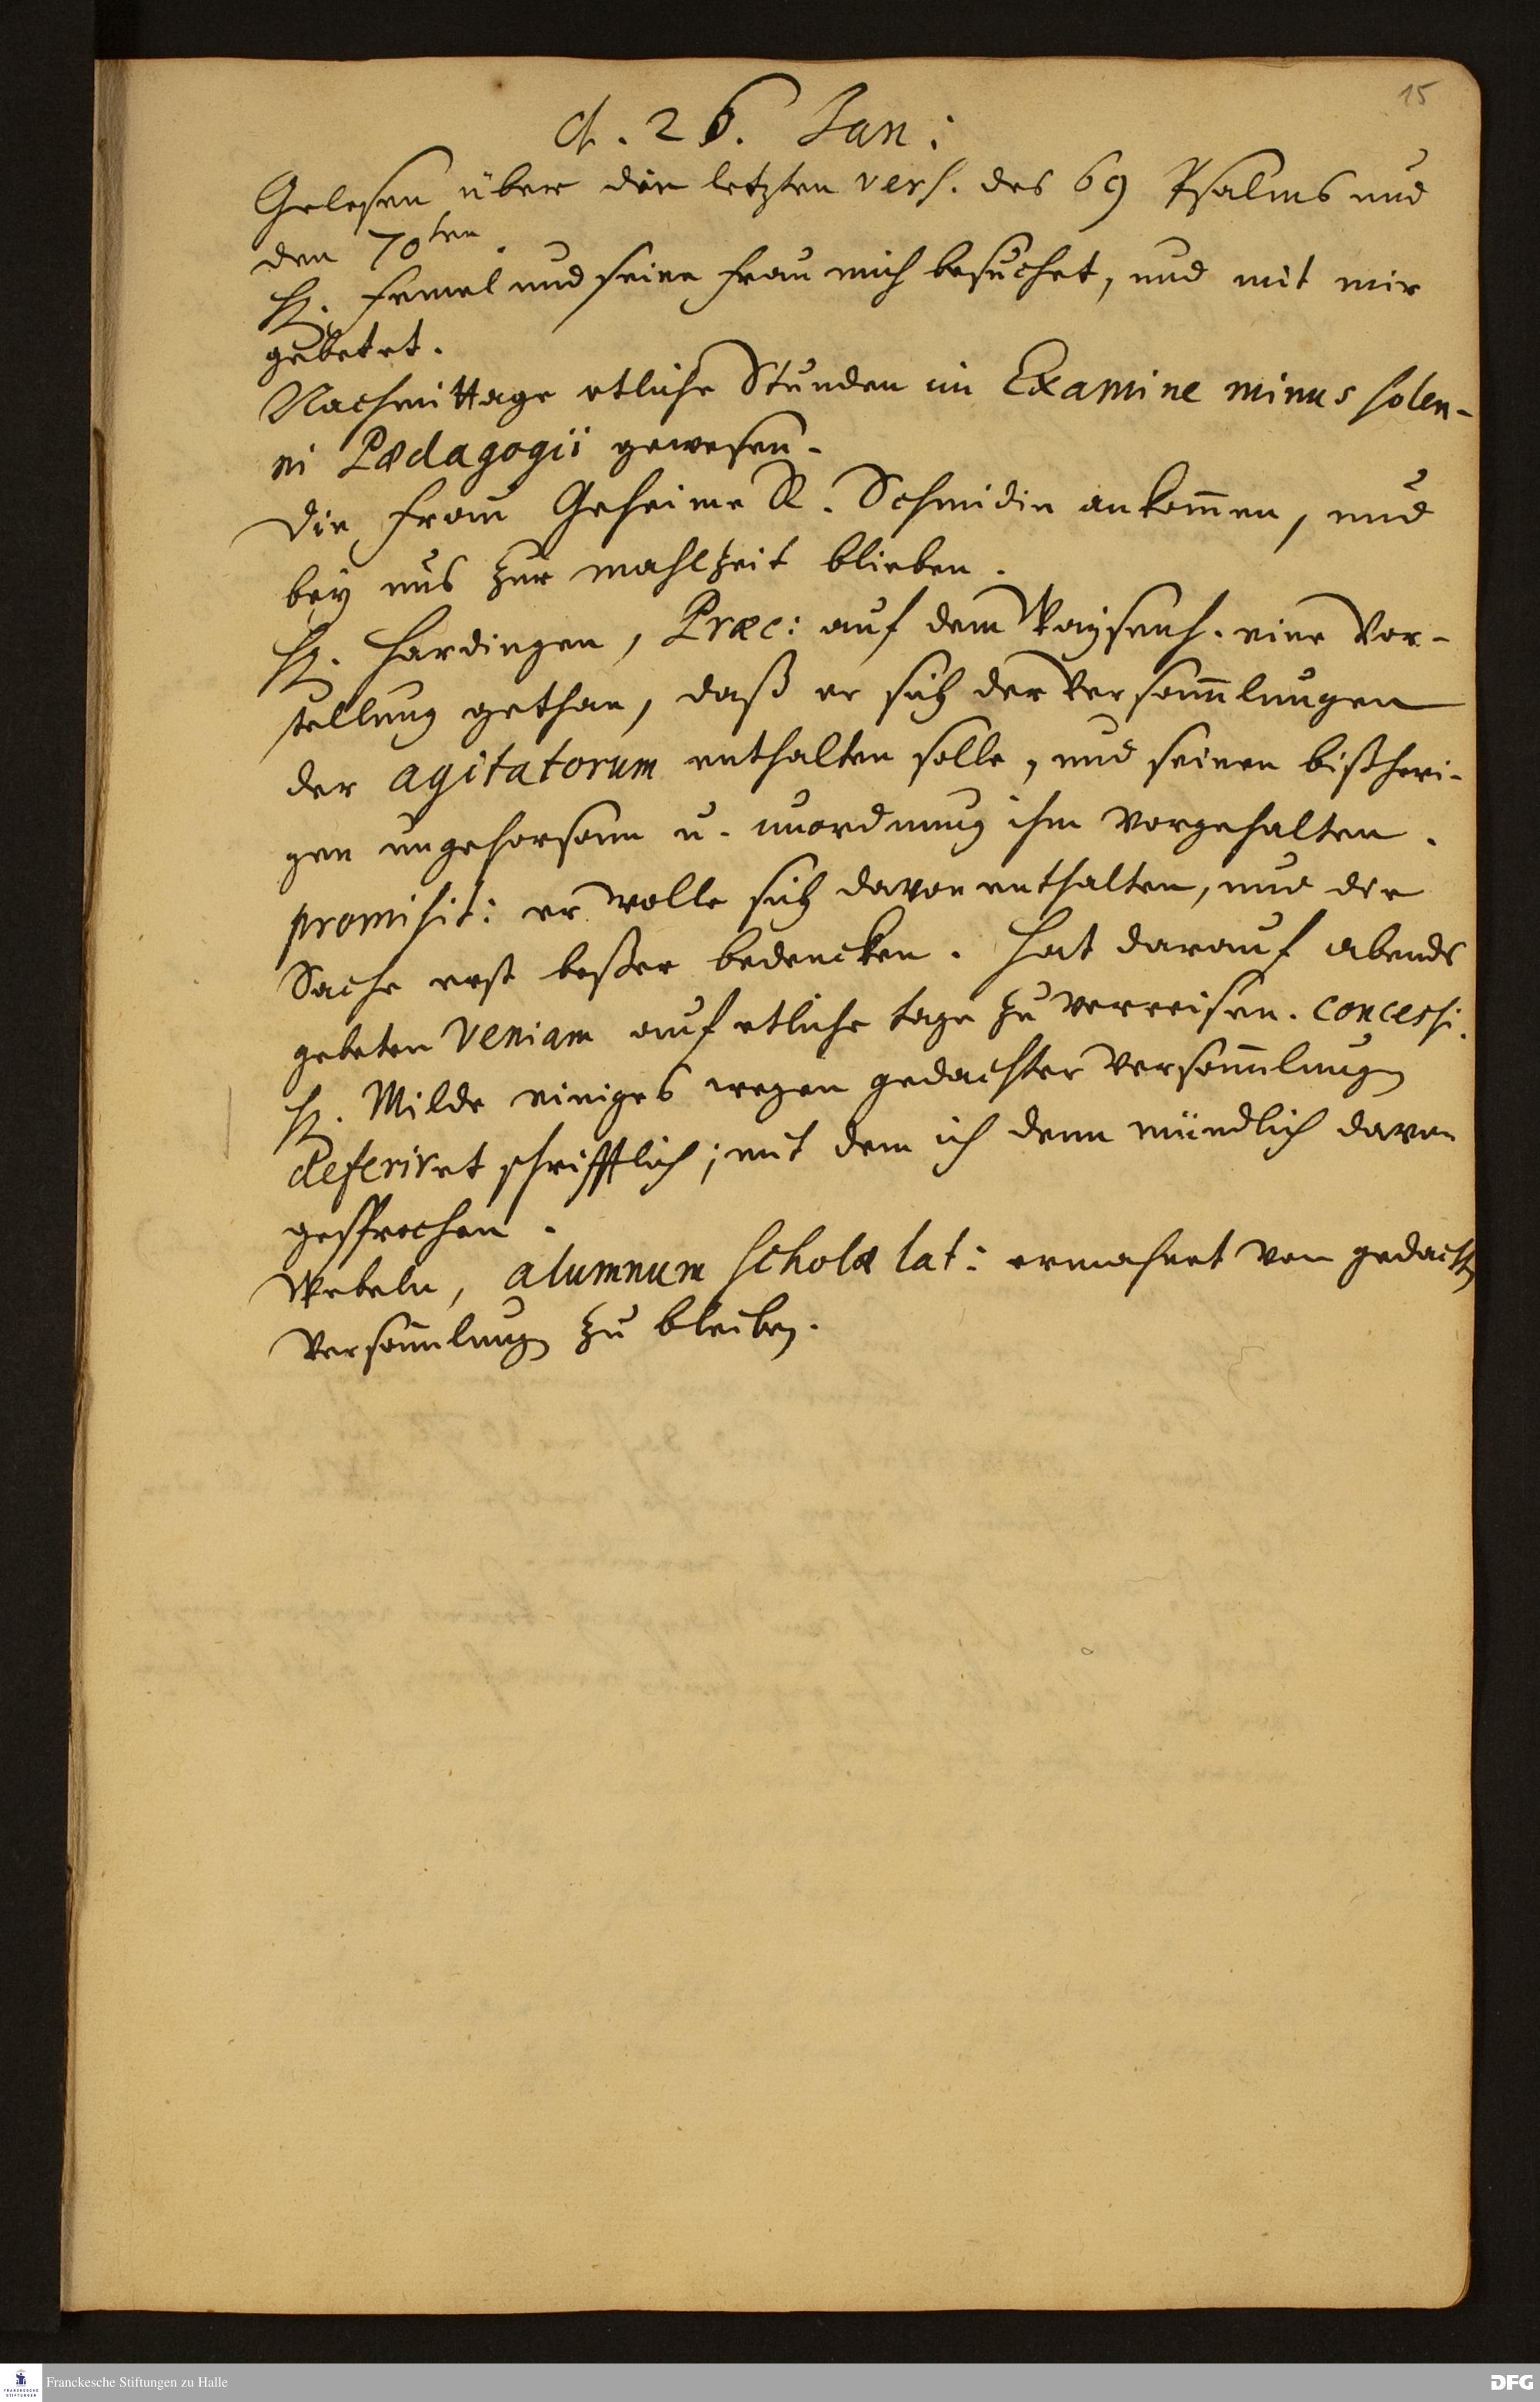 15
d. 26. Jan:
Gelesen über die letzten vers. des 69 Psalms und
den 70ten.
H. Femel und seine Frau mich besuchet, und mit mir
gebetet.
Nachmittage etliche Stunden im Examine minus solen-
ni Pædagogii gewesen.
Die Frau Geheime R. Schmidin ankommen, und
bey uns zur mahlzeit blieben.
H. Hardingen, Præc: auf dem Waysenh. eine Vor-
stellung gethan, daß er sich der Versammlungen
der agitatorum enthalten solle, und seinen bißheri-
gen ungehorsam u. unordnung ihm vorgehalten.
promisit: er wolle sich davon enthalten, und die
Sache erst beßer bedencken. Hat darauf abends
gebeten veniam auf etliche tage zu verreisen. concessi.
H. Milde einiges wegen gedachter Versammlung
referiret schrifftlich; mit dem ich denn mündlich davon
gesprochen.
Webeln, alumnum scholæ lat: ermahnet von gedachter
Versammlung zu bleiben.
Franckesche Stiftungen zu Halle
DFG